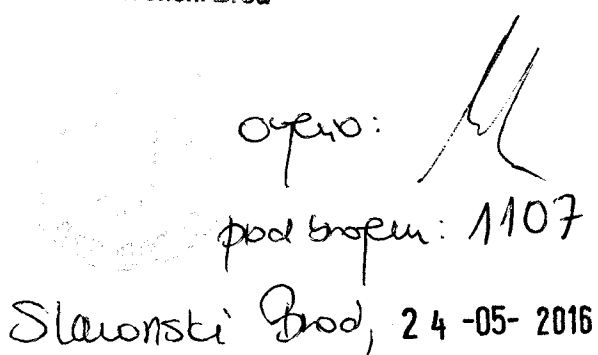 Brod
ocjenio:
pod brojem: 1107
Slavonski Brod, 24 -05- 2016